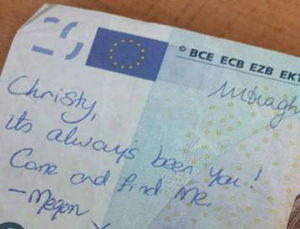 BCE ECB EZB EKT
Christy,
its always been you!
Come and find me
- Megan x